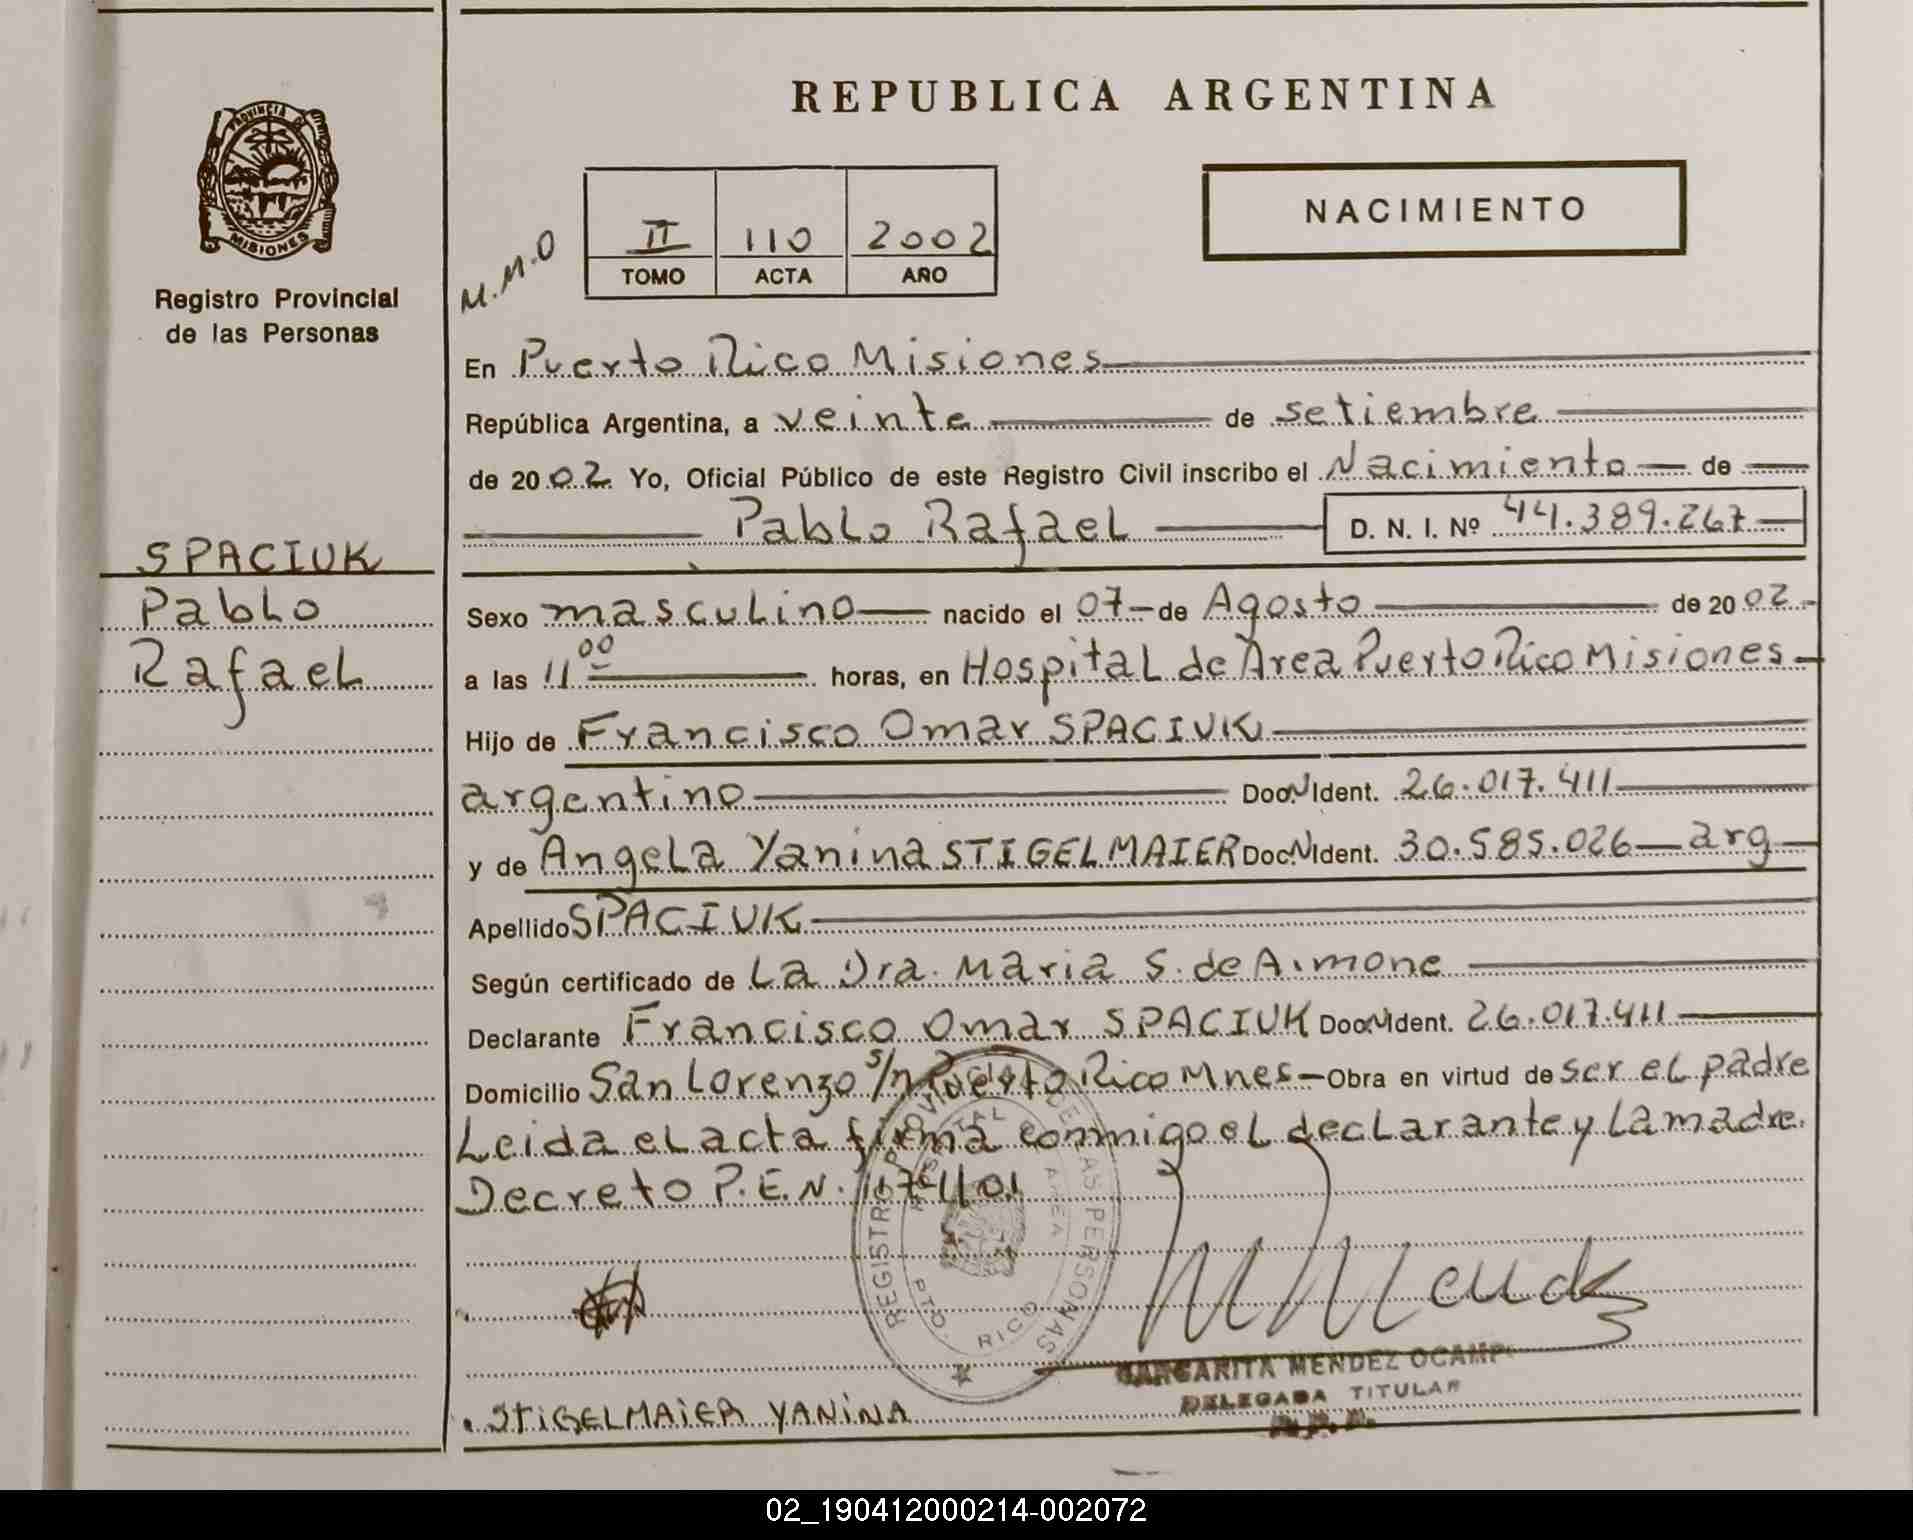 REPUBLICA ARGENTINA
PROVINCIA DE
MISIONES
Registro Provincial
de las Personas
M.M.O
II 110 2002
TOMO ACTA AÑO
NACIMIENTO
En Puerto Rico Misiones
República Argentina, a veinte de setiembre
de 2002 Yo, Oficial Público de este Registro Civil inscribo el Nacimiento de
Pablo Rafael D. N. I. Nº 44.389.267
SPACIUK
Pablo
Rafael
Sexo masculino nacido el 07 de Agosto de 2002
a las 11 00 horas, en Hospital de Area Puerto Rico Misiones
Hijo de Francisco Omar SPACIUK
argentino Doc.N Ident. 26.017.411
y de Angela Yanina STIGELMAIER Doc.N Ident. 30.585.026 arg
Apellido SPACIUK
Según certificado de La Dra. Maria S. de Aimone
Declarante Francisco Omar SPACIUK Doc.N Ident. 26.017.411
Domicilio San Lorenzo s/n Puerto Rico Mnes Obra en virtud de ser el padre
Leida el acta firma conmigo el declarante y la madre.
Decreto P.E.N.
REGISTRO PROVINCIAL DE LAS PERSONAS
HOSPITAL AREA
PTO. RICO
MARGARITA MENDEZ OCAMPO
DELEGADA TITULAR
STIGELMAIER YANINA
02_190412000214-002072